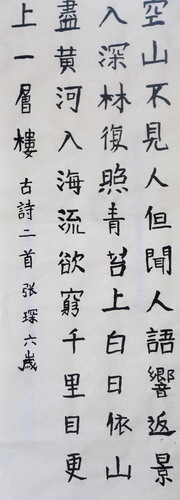 空山不見人但聞人語響返景
入深林復照青苔上白日依山
盡黃河入海流欲窮千里目更
上一層樓 古詩二首 张琛六歲